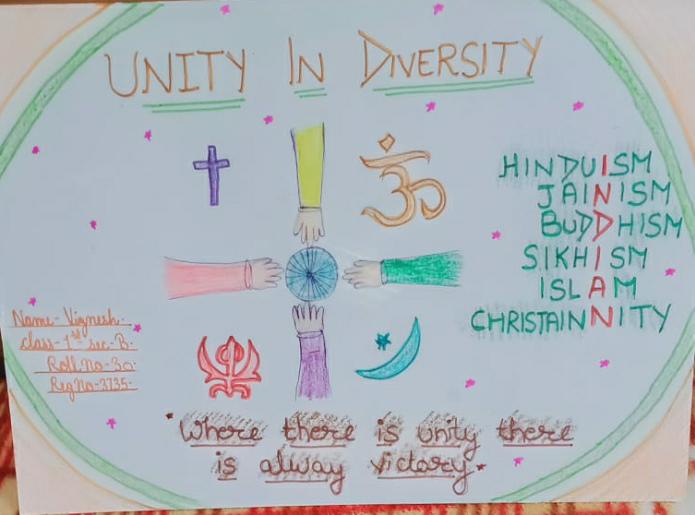 UNITY IN DIVERSITY
HINDUISM
JAINISM
BUDDHISM
SIKHISM
ISLAM
CHRISTAINNITY
Name-Vignesh-
class-1st-sec-B-
Roll.No-30-
RegNo-3735-
"Where there is unity there
is alway victory"